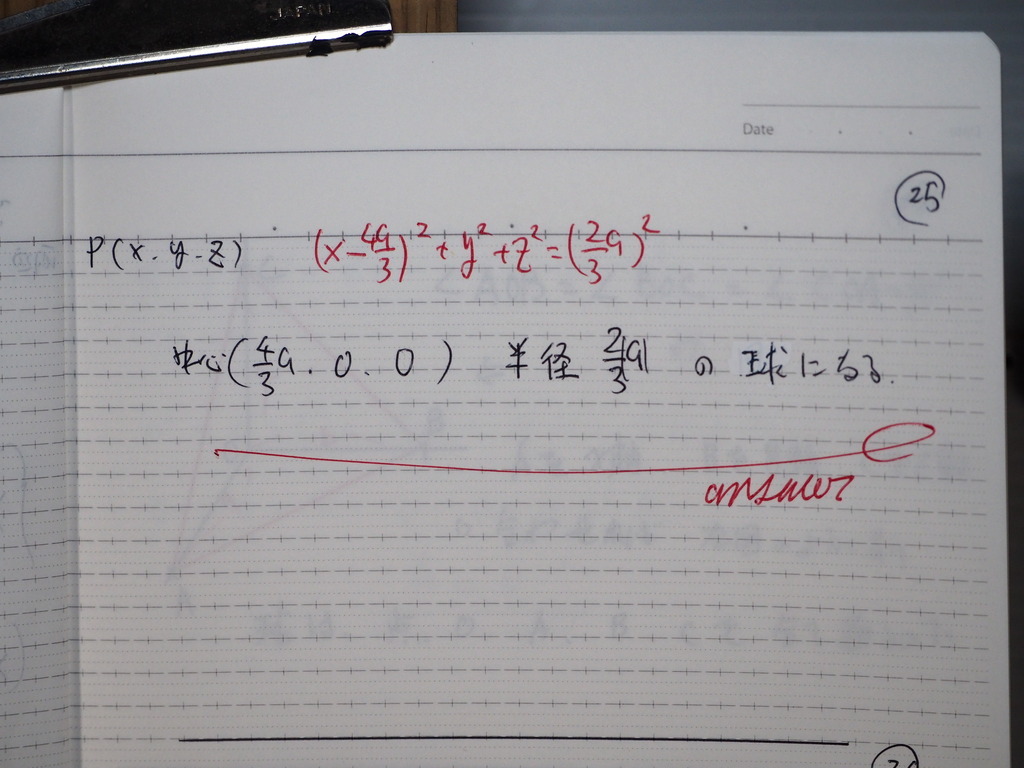 JAPAN
Date
25
P(x.y.z) (x-4a/3)²+y²+z²=(2/3a)²
中心(4/3a.0.0) 半径 2/3|a| の球になる.
answer